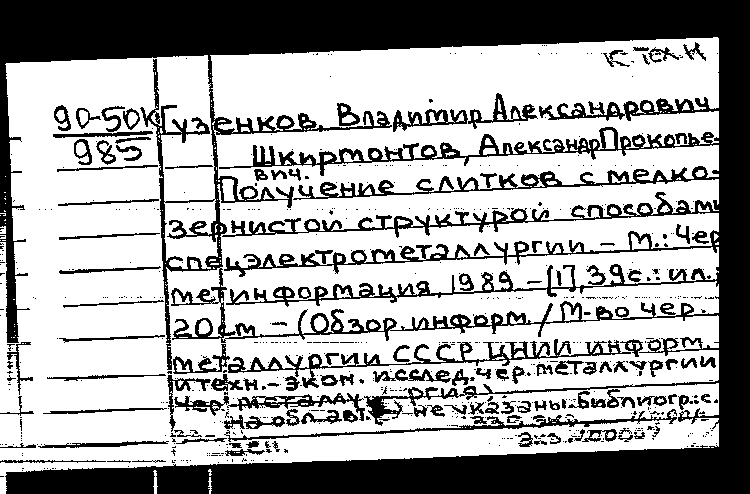 К. тех.н
90-50к Гузенков, Владимир Александрович
985
Шкирмонтов, Александр Прокопье-
вич.
Получение слитков с мелко-
зернистой структурой способами
спецэлектрометаллургии. - М.: Чер
метинформация, 1989. - [1], 39 с.: ил.;
20 см. - (Обзор. информ. / М-во чер.
металлургии СССР, ЦНИИ информ.
и техн.-экон. исслед. чер. металлургии
Чер. металлургия)
На обл. авт. не указаны. Библиогр.: с.
экз.